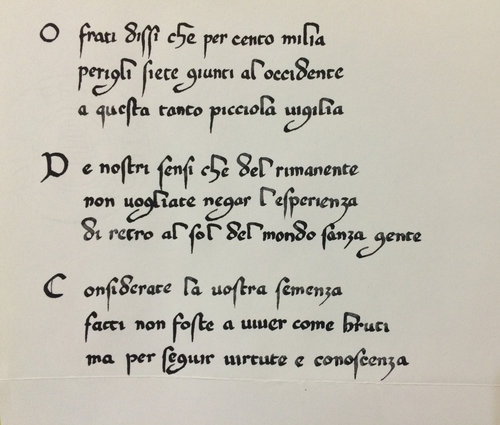 O frati dissi che per cento milia
perigli siete giunti al occidente
a questa tanto picciola uigilia
D e nostri sensi che del rimanente
non uogliate negar l'esperienza
di retro al sol del mondo sanza gente
C onsiderate la uostra semenza
fatti non foste a uiuer come bruti
ma per seguir uirtute e conoscenza